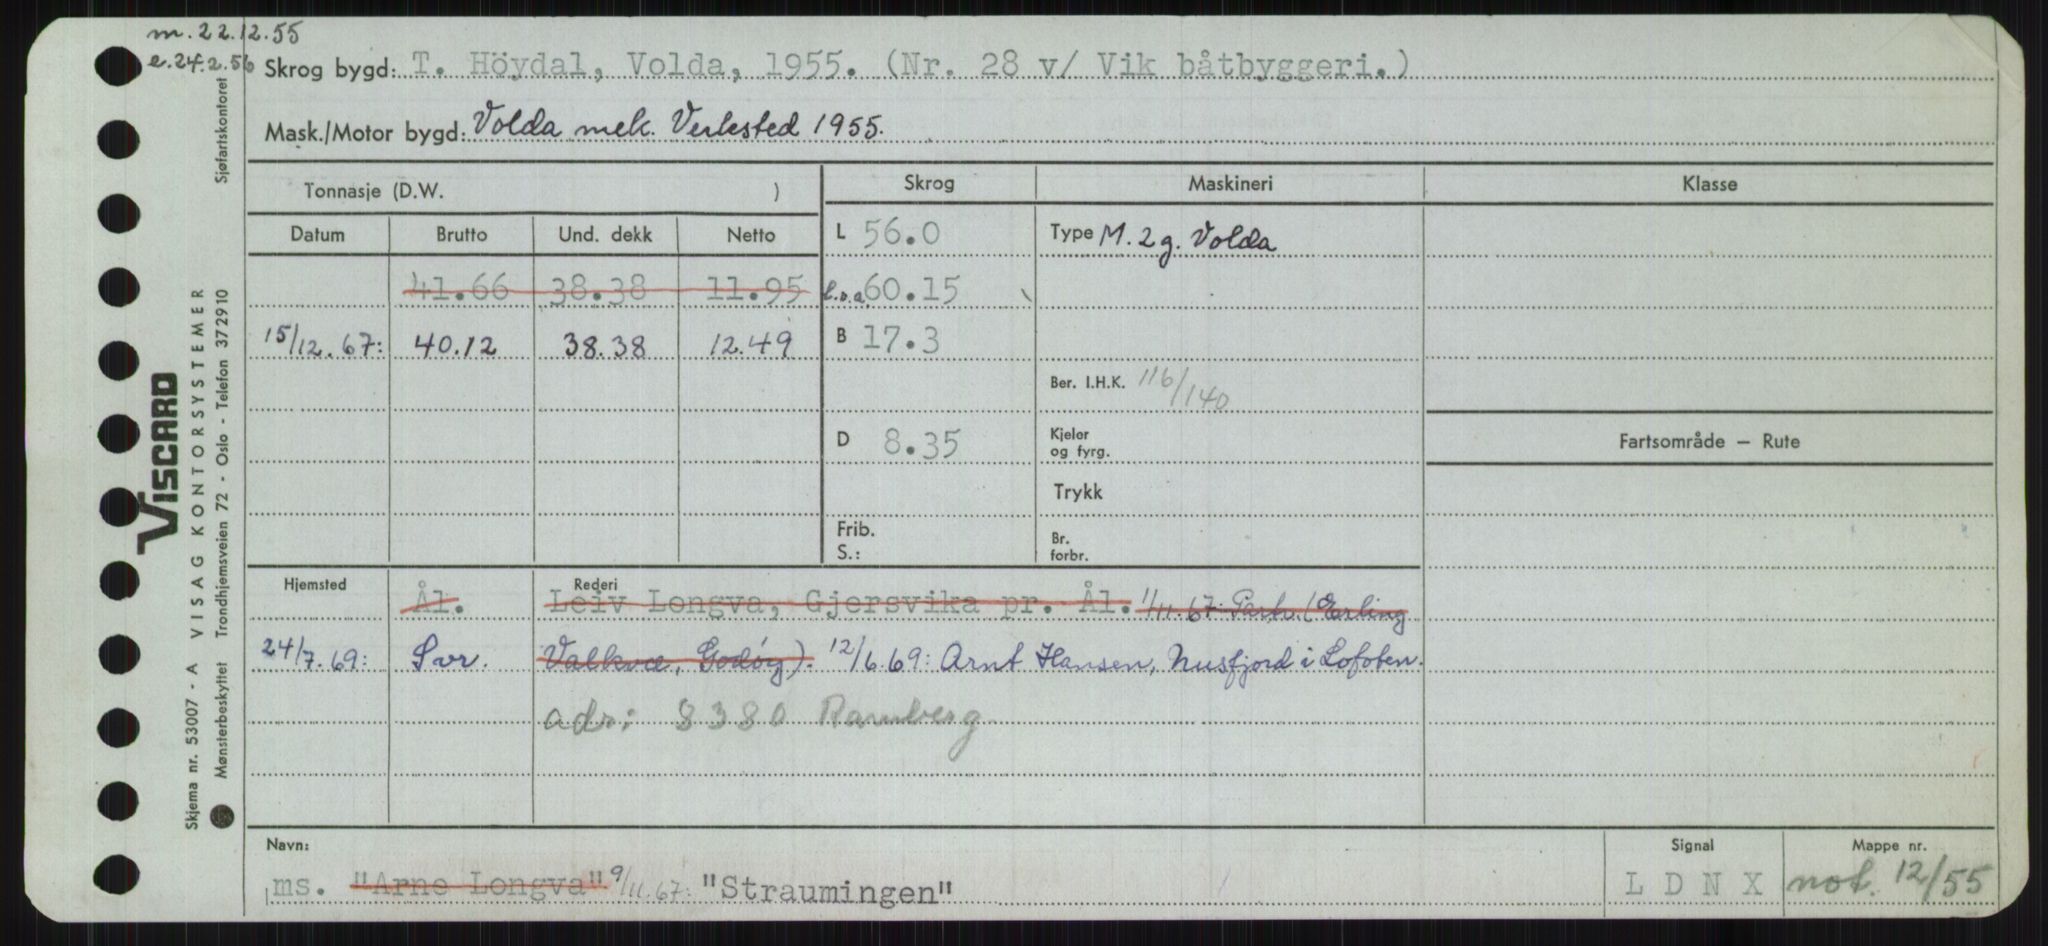 m. 22.12.55
e. 24.2.56
Skrog bygd: T. Höydal, Volda, 1955. (Nr. 28 v/ Vik båtbyggeri.)
Mask./Motor bygd: Volda mek. Verksted 1955.
Tonnasje (D.W. )
Skrog Maskineri Klasse
Datum Brutto Und. dekk Netto
L 56.0 Type M. 2 g. Volda
41.66 38.38 11.95 l.o.a. 60.15
15/12.67: 40.12 38.38 12.49 B 17.3
Ber. I.H.K. 116/140
D 8.35 Kjeler og fyrg.
Fartsområde – Rute
Trykk
Frib. S.: Br. forbr.
Hjemsted Rederi
Ål. Leiv Longva, Gjersvika pr. Ål. 1/11.67: Partr. (Erling
24/7.69: Svr. Valkvæ, Godøy). 12/6.69: Arnt Hansen, Nusfjord i Lofoten.
adr: 8380 Ramberg
Navn: Signal Mappe nr.
ms. "Arne Longva" 9/11.67: "Straumingen" L D N X not. 12/55
Sjøfartskontoret
VISCARD
Skjema nr. 53007 - A VISAG KONTORSYSTEMER
Mønsterbeskyttet Trondhjemsveien 72 - Oslo - Telefon 372910